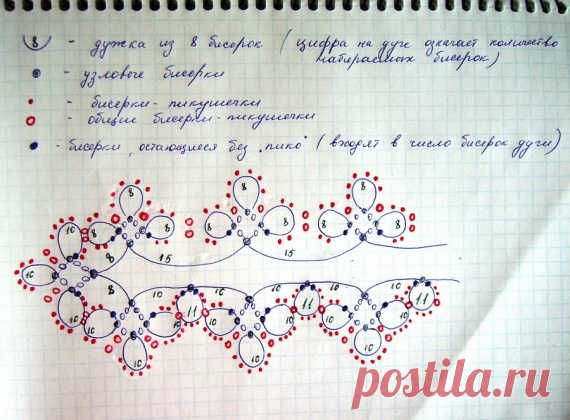 8 - дужка из 8 бисерок ( цифра на дуге означает количество
набираемых бисерок)
- узловые бисерки
- бисерки-пикушечки
- общие бисерки-пикушечки
- бисерки, остающиеся без "пико" ( входят в число бисерок дуги)
8 8 8
10 8 8 8 8 8 8
10 8 15 15
8 10 10 10 10 10
10 10 10 11 10 10 11 10 10 11
10 10 10
postila.ru